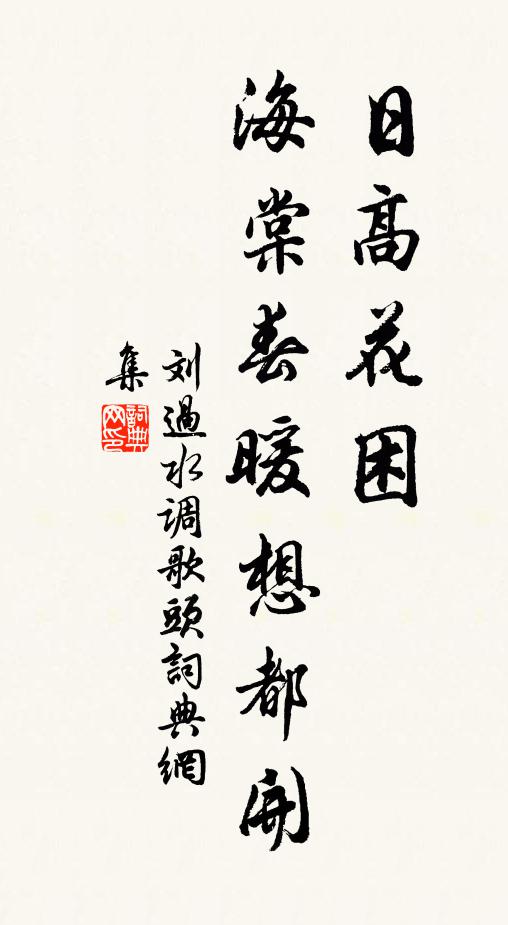 日高花困
海棠春暖想都開
刘過水调歌頭詞典網
集
詞典网印